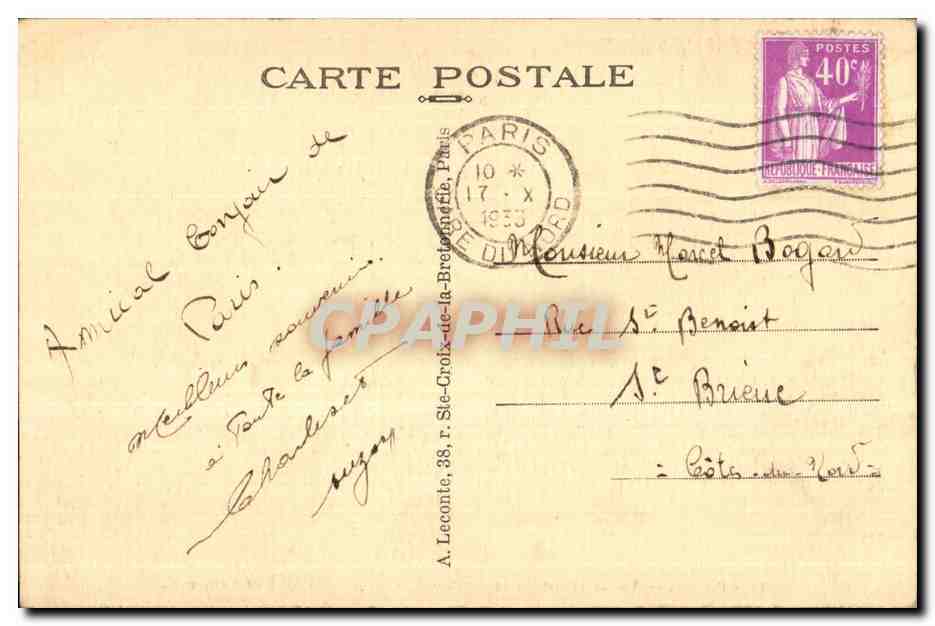 CARTE POSTALE
POSTES
40c
REPUBLIQUE-FRANÇAISE
PARIS
10 *
17 · X
193
RE DU NORD
Amical bonjour de
Paris
Meilleurs souvenirs
à Toute la famille
Charles et
Suzon
A. Leconte, 38, r. Ste-Croix-de-la-Bretonnerie, Paris
Monsieur Marcel
Rue St. Benoist
St Brieuc
- Côtes-du-Nord -
CPAPHIL